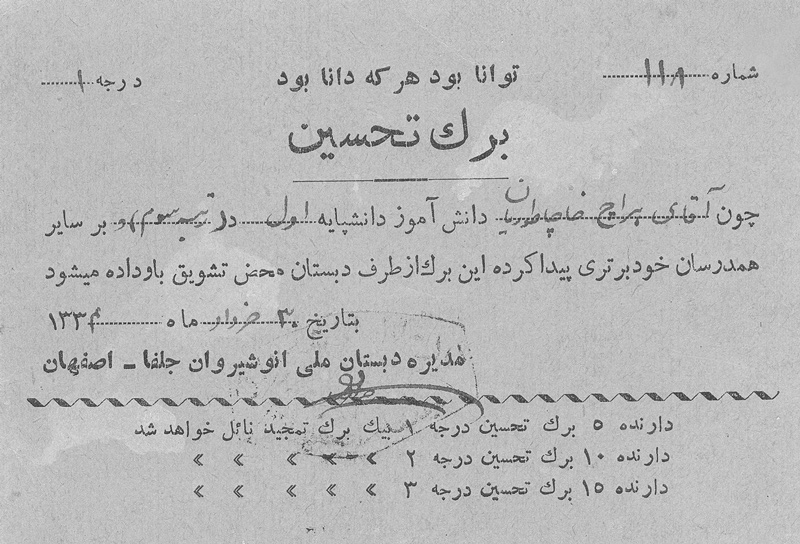 شماره ۱۱۸
توانا بود هر که دانا بود
درجه ۱
برك تحسین
چون آقای ایرج خاچاطوریان دانش آموز دانشپایه اول در سوم بر سایر
همدرسان خود برتری پیدا کرده این برك از طرف دبستان محض تشویق باو داده میشود
بتاریخ ۳۰ خرداد ماه ۱۳۳۴
مدیره دبستان ملی انوشیروان جلفا ـ اصفهان
دارنده ۵ برك تحسین درجه ۱ بیك برك تمجید نائل خواهد شد
دارنده ۱۰ برك تحسین درجه ۲ » » » » »
دارنده ۱۵ برك تحسین درجه ۳ » » » » »